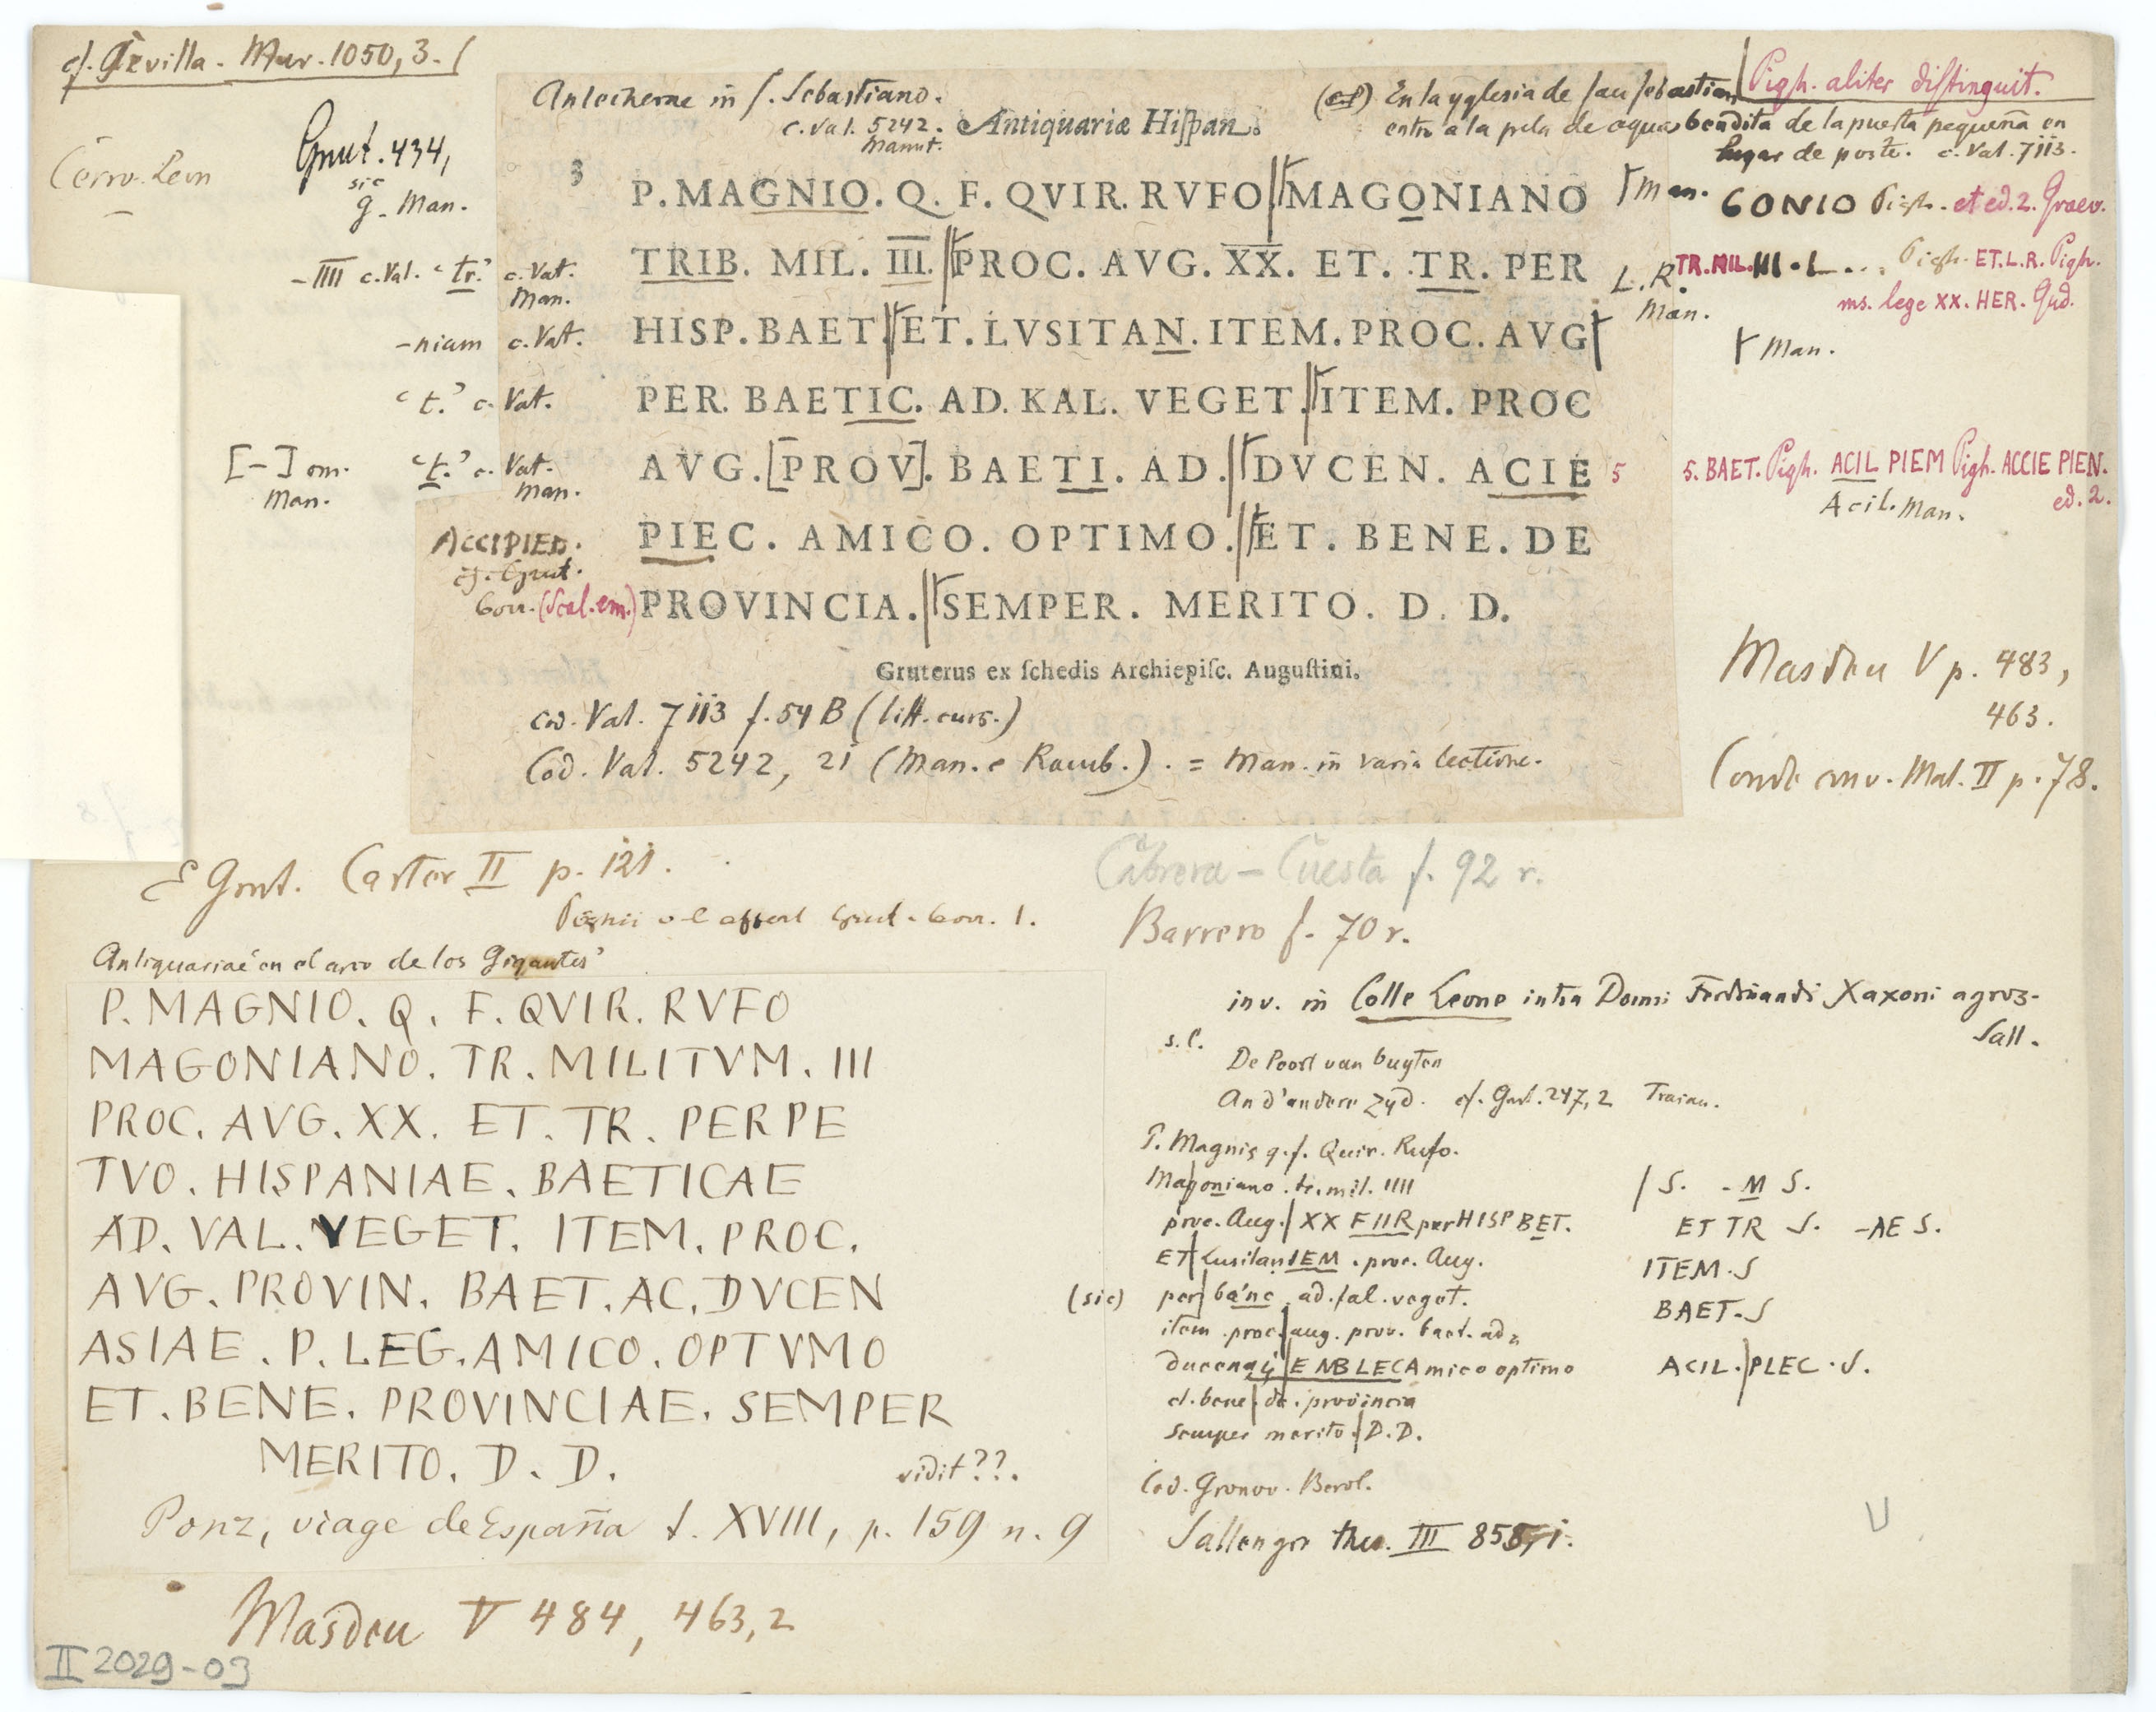 cf. Sevilla. Mur. 1050, 3.
Cerro Leon
Grut. 434,
sic
g. Man.
Antecherae in S. Sebastiano.
c. Vat. 5242.
Manut.
Antiquariæ Hiſpan.
En la yglesia de san sebastian
entro a la pila de aqua bendita de la puerta pequeña en
lugar de poste. c. Vat. 7113.
Pigh. aliter distinguit.
3
P. MAGNIO. Q. F. QVIR. RVFO MAGONIANO
Man. GONIO Pigh. et ed. 2. Graev.
- IIII c. Vat. 'tr.' c. Vat.
Man.
TRIB. MIL. III. PROC. AVG. XX. ET. TR. PER
L. R.
Man.
TR. MIL. III. L... Pigh. ET. L. R. Pigh.
ms. lege XX. HER. Gud.
-niam c. Vat.
HISP. BAET. ET. LVSITAN. ITEM. PROC. AVG
Man.
't.' c. Vat.
PER. BAETIC. AD. KAL. VEGET. ITEM. PROC
[-] om.
Man.
't.' c. Vat.
Man.
AVG. [PROV]. BAETI. AD. DVCEN. ACIE 5
5. BAET. Pigh. ACIL PIEM Pigh. ACCIE PIEN.
ed. 2.
Acil. Man.
ACCIPIED.
cf. Grut.
Corr. (Scal. em.)
PIEC. AMICO. OPTIMO. ET. BENE. DE
PROVINCIA. SEMPER. MERITO. D. D.
Gruterus ex ſchedis Archiepiſc. Auguſtini.
Cod. Vat. 7113 f. 54 B (litt. curs.)
Cod. Vat. 5242, 21 (Man. e Ramb.). = Man. in varia lectione.
Masdeu V p. 483,
463.
Conde conv. Mal. II p. 78.
E Grut. Carter II p. 121.
Pighii v. l. affert Grut. Corr. 1.
Cabrera - Cuesta f. 92 r.
Barrero f. 70 r.
Antiquariae 'en el arco de los Gigantes'
P. MAGNIO. Q. F. QVIR. RVFO
MAGONIANO. TR. MILITVM. III
PROC. AVG. XX. ET. TR. PERPE
TVO. HISPANIAE. BAETICAE
AD. VAL. VEGET. ITEM. PROC.
AVG. PROVIN. BAET. AC. DVCEN
ASIAE. P. LEG. AMICO. OPTVMO
ET. BENE. PROVINCIAE. SEMPER
MERITO. D. D.
vidit??.
Ponz, viage de España t. XVIII, p. 159 n. 9
Masdeu V 484, 463, 2
II 2029-03
inv. in Colle Leone intra Domni Ferdinandi Xaxoni agros.
Sall.
s. l.
De Poort van buyten
An d'andere zyd. cf. Grut. 247, 2 Traian.
P. Magnis q. f. Quir. Rufo.
Magoniano. tr. mil. IIII
/ S. - M S.
proc. Aug. XX FIIR per HISP BET.
ET TR S. -AE S.
ET Lusitan IEM. proc. Aug.
ITEM. S
(sic) per banc ad. fal. veget.
BAET. S
item. proc. aug. prov. baet. ad.
ENBLEC Amico optimo
ACIL. PLEC. S.
et. bene de. provincia
semper merito. D. D.
Cod. Gronov. Berol.
Sallengre thes. III 855, 1.
V